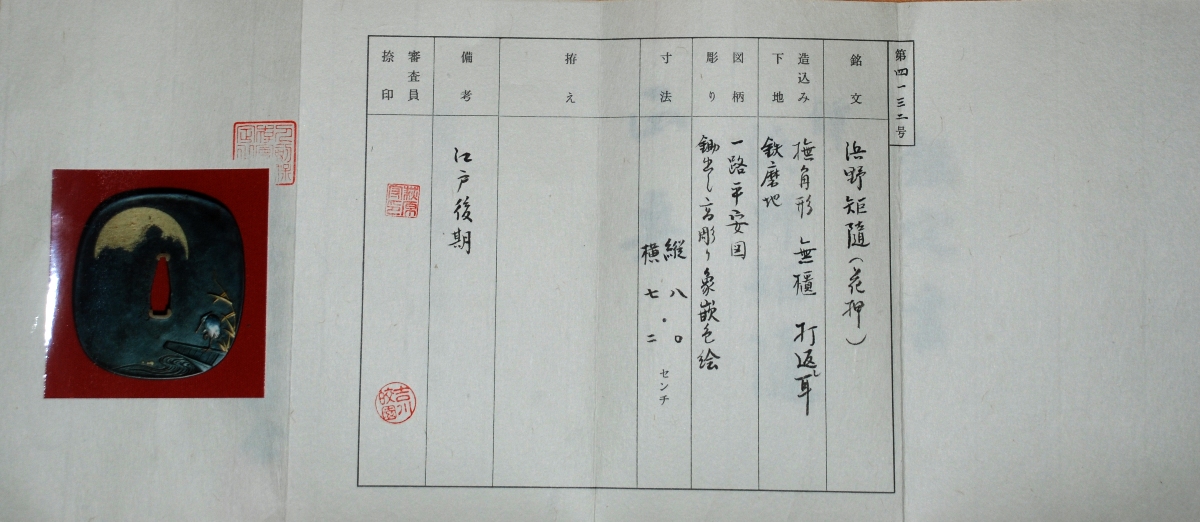 第四一三二号
銘文
浜野矩隨(花押)
造込み
撫角形 無櫃 打返し耳
下地
鉄磨地
図柄
一路平安図
彫り
鋤出し高彫り象嵌色絵
寸法
縦 八.〇
横 七.二
センチ
拵え
備考
江戸後期
審査員
捺印
吉川皎園